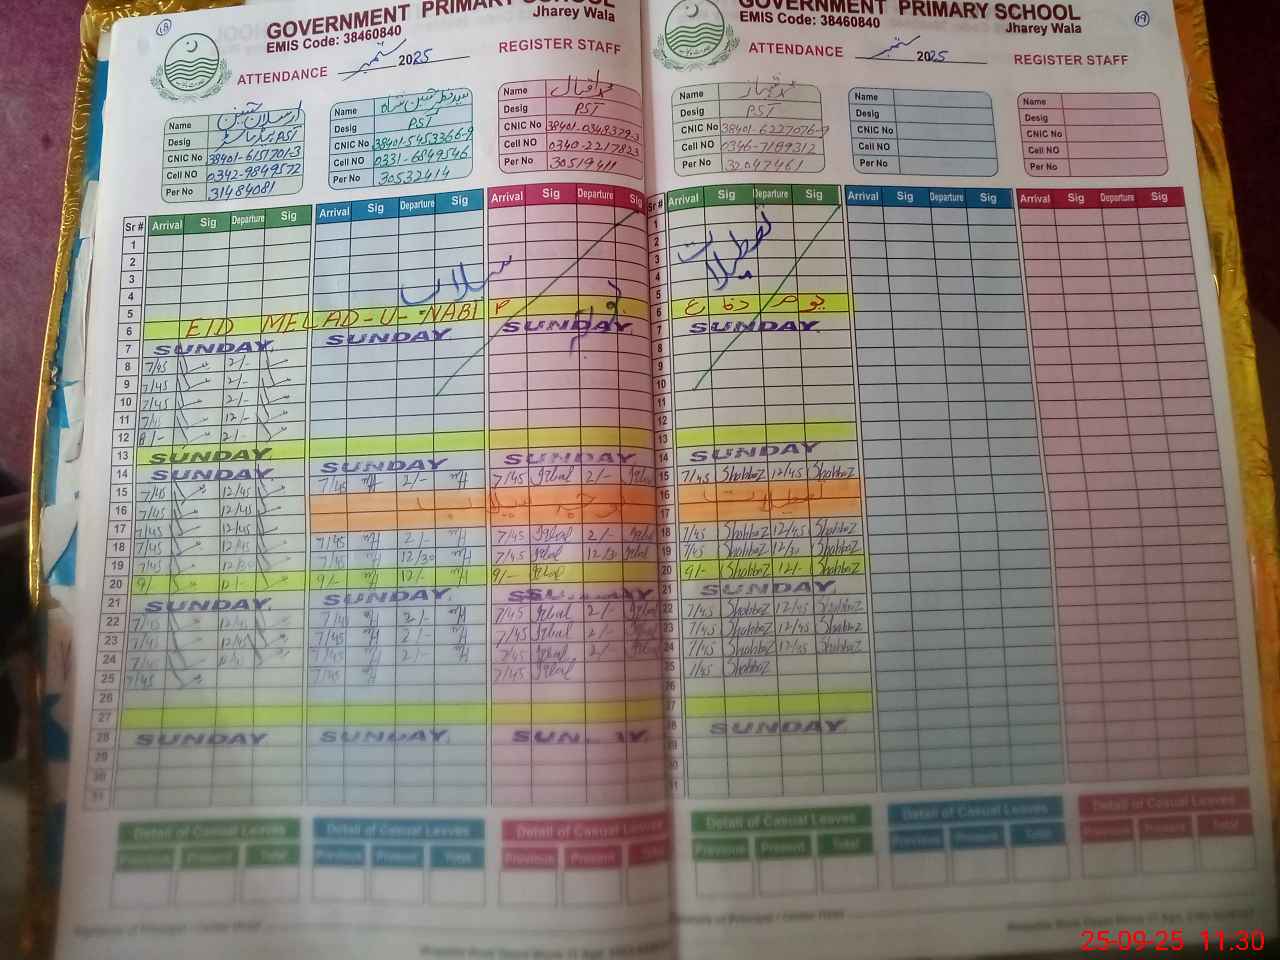 18
GOVERNMENT PRIMARY SCHOOL
Jharey Wala
EMIS Code: 38460840
ATTENDANCE ستمبر 2025
REGISTER STAFF
Name ارسلان
Desig PST
CNIC No 38401-6151701-3
Cell NO 0342-9849572
Per No 31484081
Name
Desig PST
CNIC No 38401-5453366-9
Cell NO 0331-6849546
Per No 30532414
Name محمد اقبال
Desig PST
CNIC No 38401-0348379-3
Cell NO 0340-2217823
Per No 30519411
Sr # Arrival Sig Departure Sig Arrival Sig Departure Sig Arrival Sig Departure Sig
1
2
3
4 سیلاب
5
6 EID MELAD-U-NABI
7 SUNDAY SUNDAY SUNDAY
8 7/45 2/-
9 7/45 2/-
10 7/45 2/-
11 7/45 12/-
12 8/- 2/-
13 SUNDAY
14 SUNDAY SUNDAY SUNDAY
15 7/45 12/45 7/45 2/- 7/45 Iqbal 2/- Iqbal
16 7/45 12/45
17 7/45 12/45
18 7/45 12/45 7/45 2/- 7/45 Iqbal 2/- Iqbal
19 7/45 12/30 7/45 12/30 7/45 Iqbal 12/30 Iqbal
20 9/- 12/- 9/- 12/- 9/- Iqbal
21 SUNDAY SUNDAY SUNDAY
22 7/45 12/45 7/45 2/- 7/45 Iqbal 2/- Iqbal
23 7/45 12/45 7/45 2/- 7/45 Iqbal 2/- Iqbal
24 7/45 7/45 2/- 7/45 Iqbal 2/- Iqbal
25 7/45 7/45 7/45 Iqbal
26
27
28 SUNDAY SUNDAY SUNDAY
29
30
31
Detail of Casual Leaves Detail of Casual Leaves Detail of Casual Leaves
Previous Present Total Previous Present Total Previous Present Total
19
GOVERNMENT PRIMARY SCHOOL
Jharey Wala
EMIS Code: 38460840
ATTENDANCE ستمبر 2025
REGISTER STAFF
Name
Desig PST
CNIC No 38401-6227076-9
Cell NO 0346-7199312
Per No 32047461
Name
Desig
CNIC No
Cell NO
Per No
Name
Desig
CNIC No
Cell NO
Per No
Sr # Arrival Sig Departure Sig Arrival Sig Departure Sig Arrival Sig Departure Sig
1
2 تعطیلات
3
4
5
6 یوم دفاع
7 SUNDAY
8
9
10
11
12
13
14 SUNDAY
15 7/45 Shahbaz 12/45 Shahbaz
16
17
18 7/45 Shahbaz 12/45 Shahbaz
19 7/45 Shahbaz 12/30 Shahbaz
20 9/- Shahbaz 12/- Shahbaz
21 SUNDAY
22 7/45 Shahbaz 12/45 Shahbaz
23 7/45 Shahbaz 12/45 Shahbaz
24 7/45 Shahbaz 12/45 Shahbaz
25 7/45 Shahbaz
26
27
28 SUNDAY
29
30
31
Detail of Casual Leaves Detail of Casual Leaves Detail of Casual Leaves
Previous Present Total Previous Present Total Previous Present Total
25-09-25 11.30